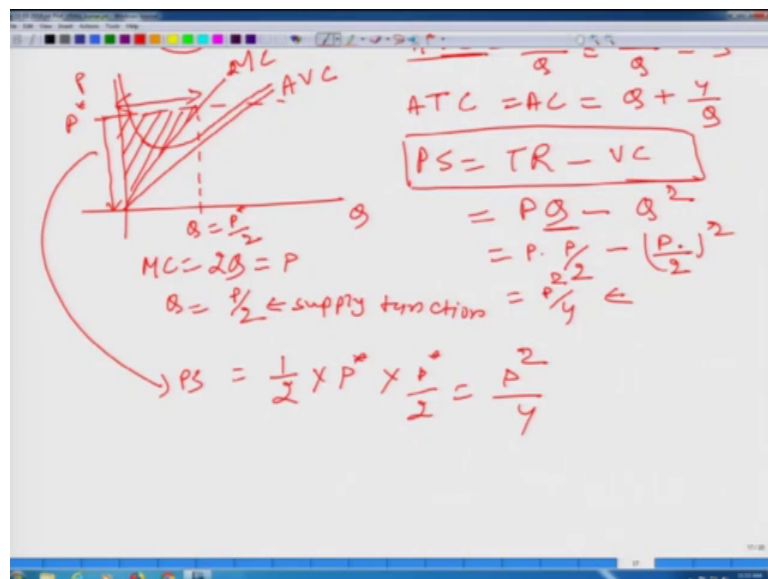 MC
AVC
P
P*
Q
Q = P*/2
MC = 2Q = P
Q = P/2 ← supply function
ATC = AC = Q + 4/Q
PS = TR − VC
= PQ − Q²
= P. P/2 − (P./2)²
= P²/4 ←
PS = 1/2 × P* × P*/2 = P²/4